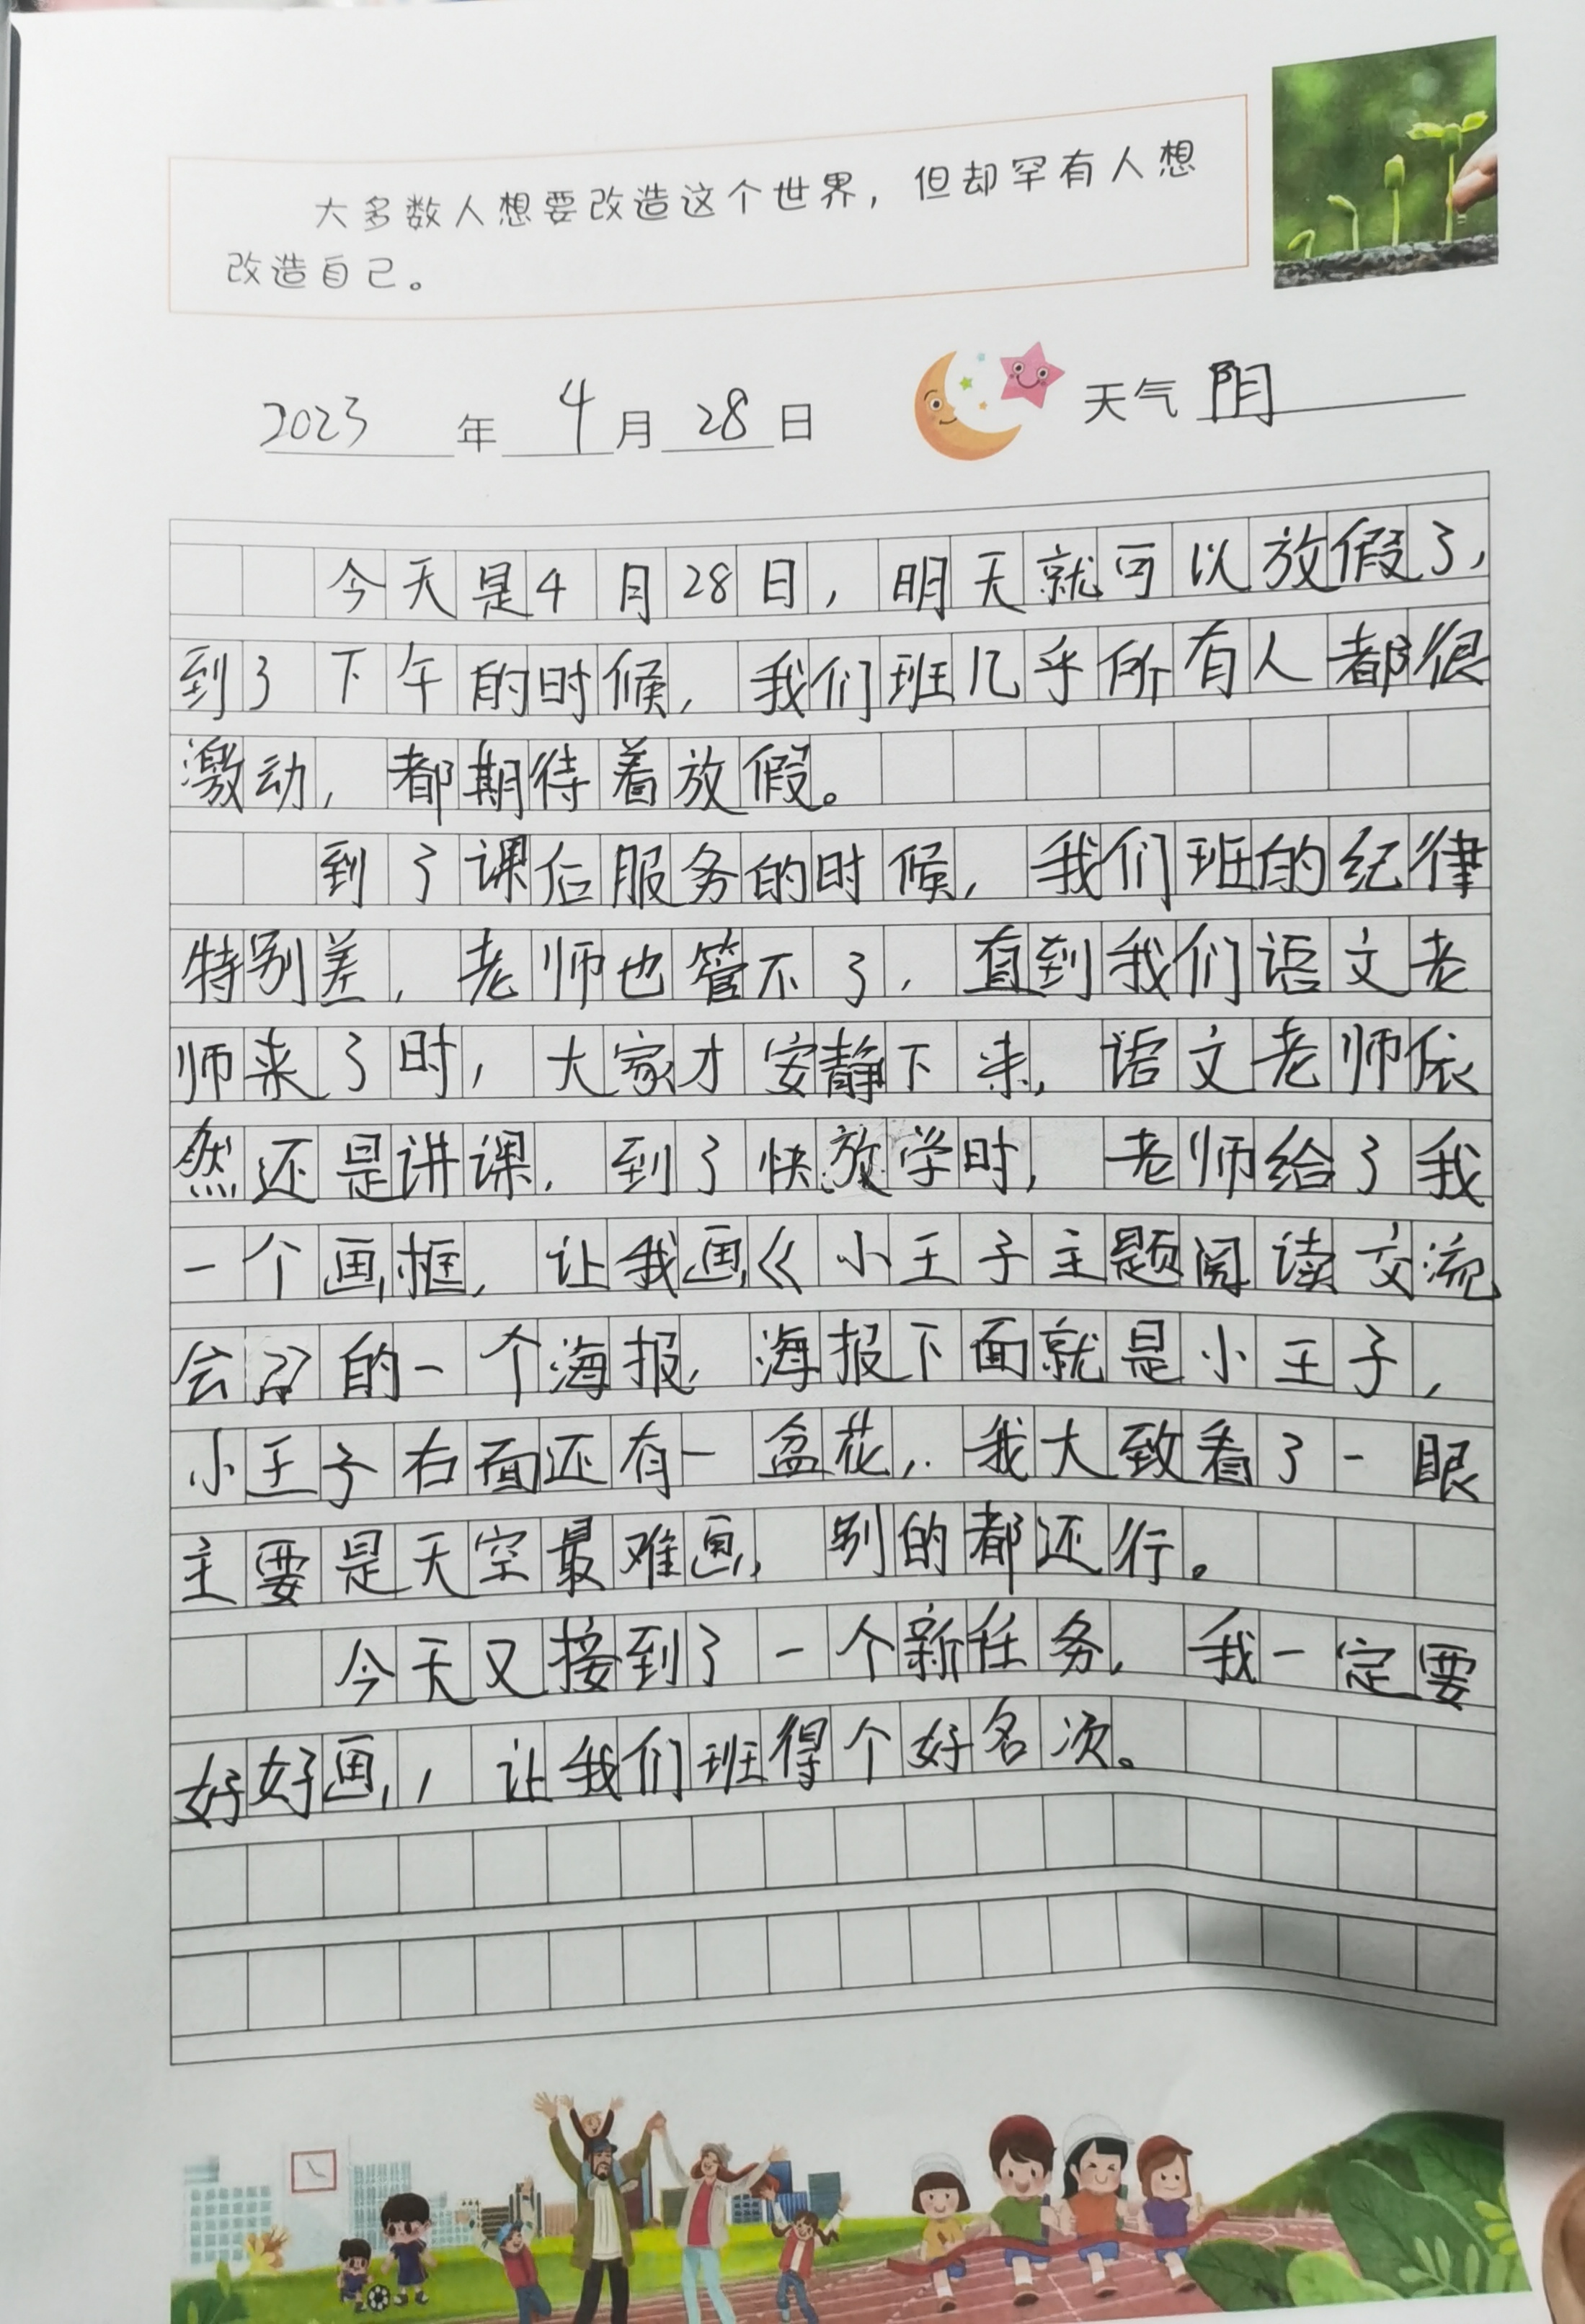 大多数人想要改造这个世界，但却罕有人想
改造自己。
2023年4月28日 天气 阴
今天是4月28日，明天就可以放假了，
到了下午的时候，我们班几乎所有人都很
激动，都期待着放假。
到了课后服务的时候，我们班的纪律
特别差，老师也管不了，直到我们语文老
师来了时，大家才安静下来，语文老师依
然还是讲课，到了快放学时，老师给了我
一个画框，让我画《小王子主题阅读交流
会》的一个海报，海报下面就是小王子，
小王子右面还有一盆花，我大致看了一眼
主要是天空最难画，别的都还行。
今天又接到了一个新任务，我一定要
好好画，让我们班得个好名次。